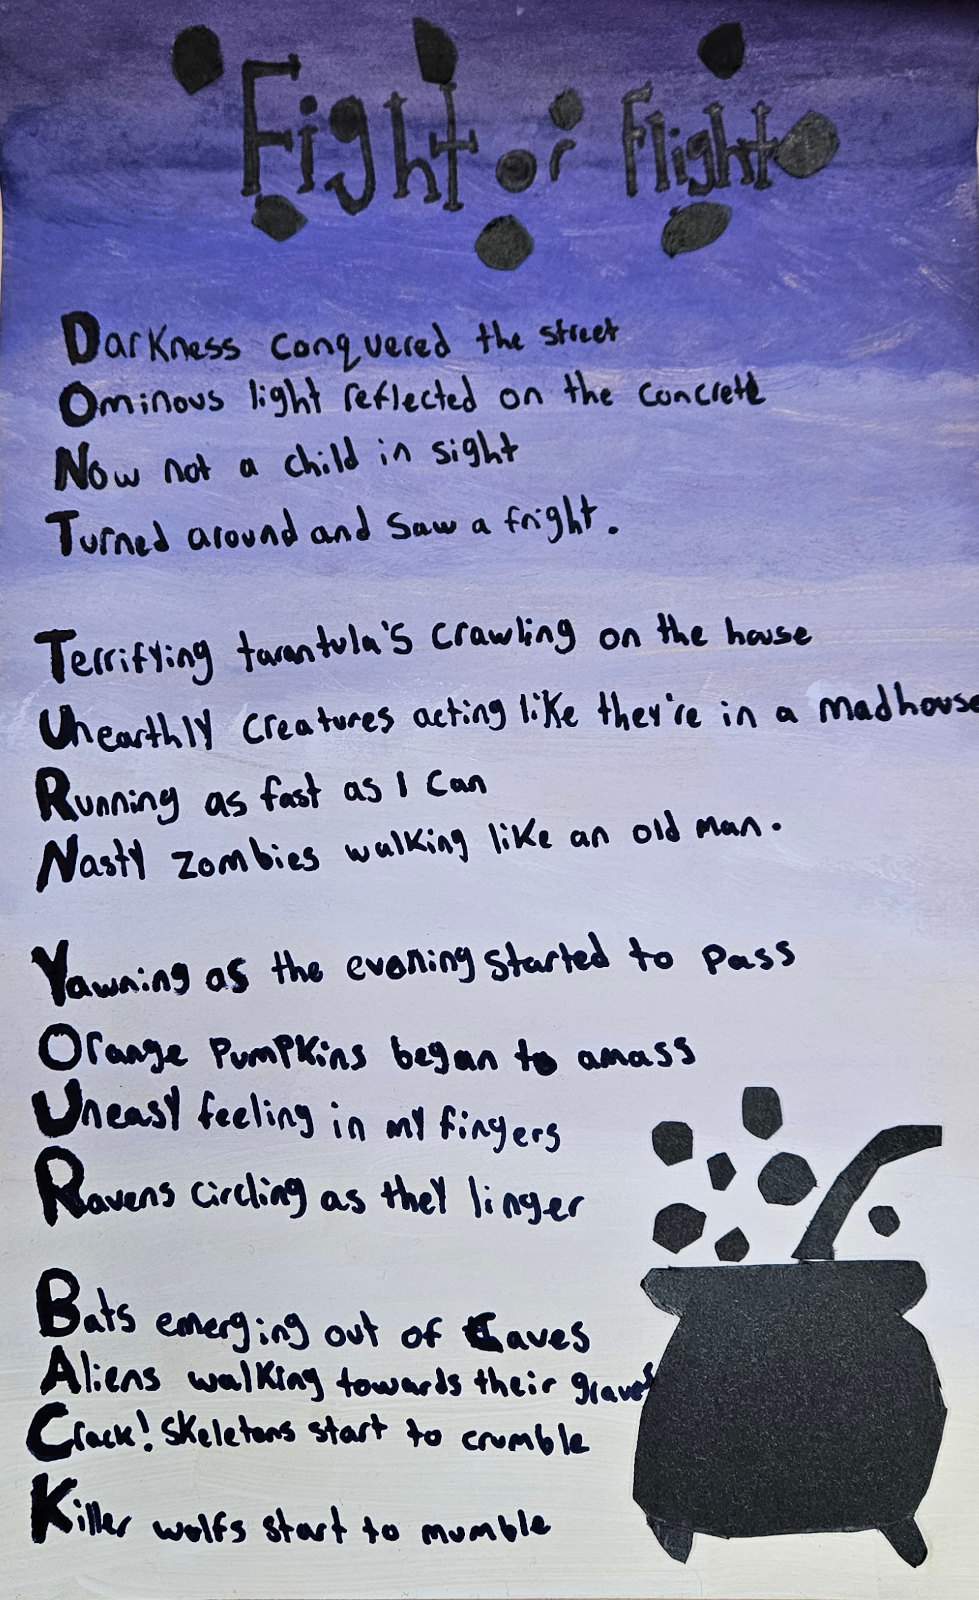 Fight or Flight
Darkness conquered the street
Ominous light reflected on the concrete
Now not a child in sight
Turned around and saw a fright.
Terrifying tarantula's crawling on the house
Unearthly creatures acting like they're in a madhouse
Running as fast as I can
Nasty zombies walking like an old man.
Yawning as the evening started to pass
Orange pumpkins began to amass
Uneasy feeling in my fingers
Ravens circling as they linger
Bats emerging out of caves
Aliens walking towards their graves
Crack! Skeletons start to crumble
Killer wolfs start to mumble